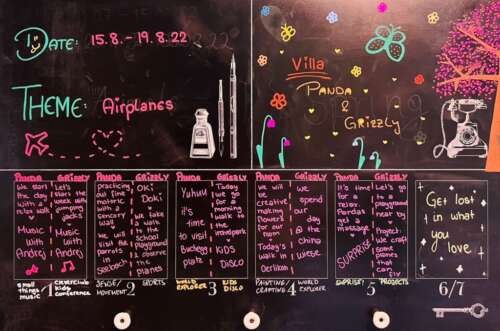 DATE: 15.8. - 19.8.22
THEME: Airplanes
Villa
PANDA
&
GRIZZLY
PANDA
We start
the day
with a
relax walk
Music
with
Andrej
GRIZZLY
Let's
start the
week with
jumping
jacks
Music
with
Andrej
small
things
music
1
exerclub
kids
conference
PANDA
practicing
our fine
motoric
with a
sensory
wall
we will
visit the
parrots
in
Seebach
GRIZZLY
Oki
Doki
we take
a walk
to the
school
playground
& observe
the
planes
SENSE/
MOVEMENT
2
SPORTS
PANDA
Yuhuu
it's
time
to visit
Buchegg
platz
GRIZZLY
Today
we go
for a
morning
walk in
the
woodpark
KIDS
DISCO
WORLD
EXPLORER
3
KIDS
DISCO
PANDA
we will
be
creative
making
flowers
for our
room
Today's
walk in
Oerlikon
GRIZZLY
we
spend
our
day
@ the
China
Wiese
PAINTING/
CRAFTING
4
WORLD
EXPLORER
PANDA
It's time
for a
tailor.
Pandas
get a
massage
SURPRISE
GRIZZLY
Let's go
to a
playground
near by
Project:
We craft
paper
planes
that
can
fly
SURPRISE!
5
PROJECTS
Get lost
in what
you
love
6/7